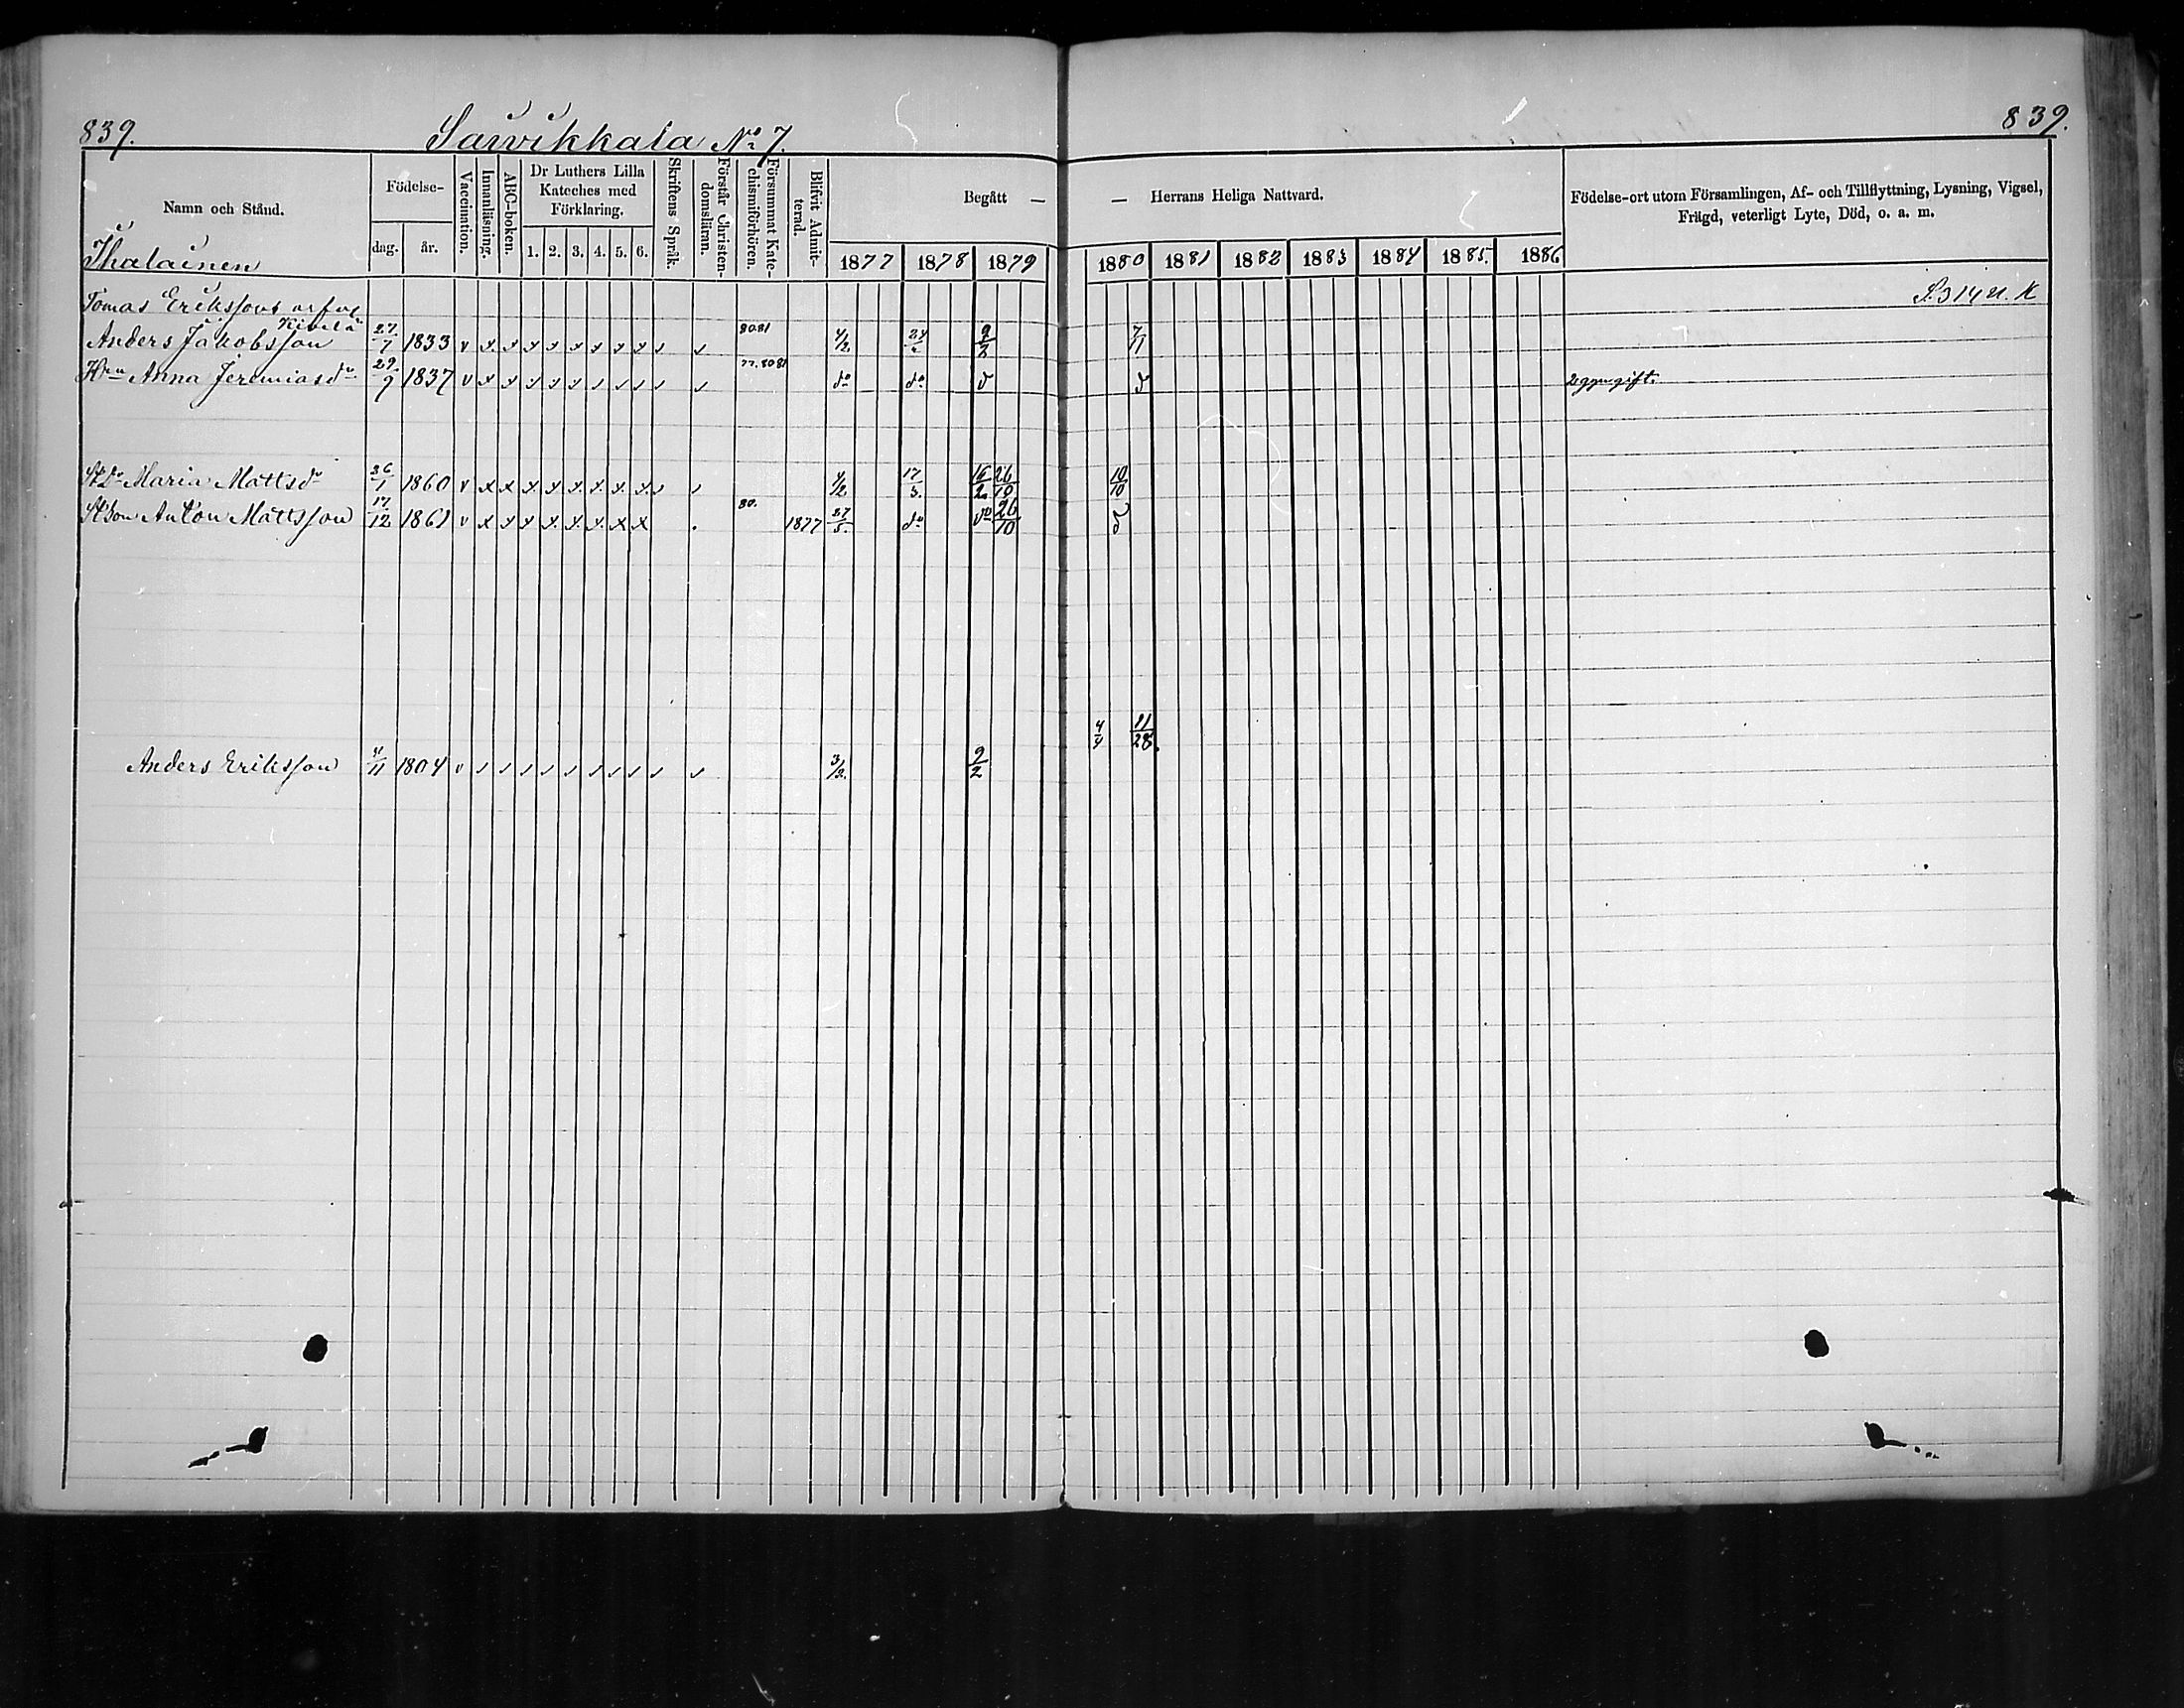 839. Sarvikkala No 7. 839.
Namn och Stånd. Födelse- dag. år. Vaccination. Innanläsning. ABC-boken. Dr Luthers Lilla Kateches med Förklaring. 1. 2. 3. 4. 5. 6. Skriftens Språk. Förstår Christendomsläran. Försummat Katechismiförhören. Blifvit Admitterad. Begått — — Herrans Heliga Nattvard. Födelse-ort utom Församlingen, Af- och Tillflyttning, Lysning, Vigsel, Frägd, veterligt Lyte, Död, o. a. m.
1877 1878 1879 1880 1881 1882 1883 1884 1885. 1886
Ihalainen
Tomas Erikssons
Anders Jakobsson 27/7 1833 v x x x x x x x x v v 8081 4/2 9/2 7/11
Hru Anna Jeremiasdr 29/9 1837 v x x x x x x x x v v 77.8081 do do d d 2 ggr gift.
St.Dr Maria Mattsdr 26/1 1860 v x x x x x x x x v v 4/2 17/3 16/2 26/10 10/10
St.son Anton Mattsson 17/12 1861 v x x x x x x x x 80. 1877 27/5 do do 26/10 d
4/4 11/28.
Anders Eriksson 1804 v v v v v v v v v v v 3/2. 9/2